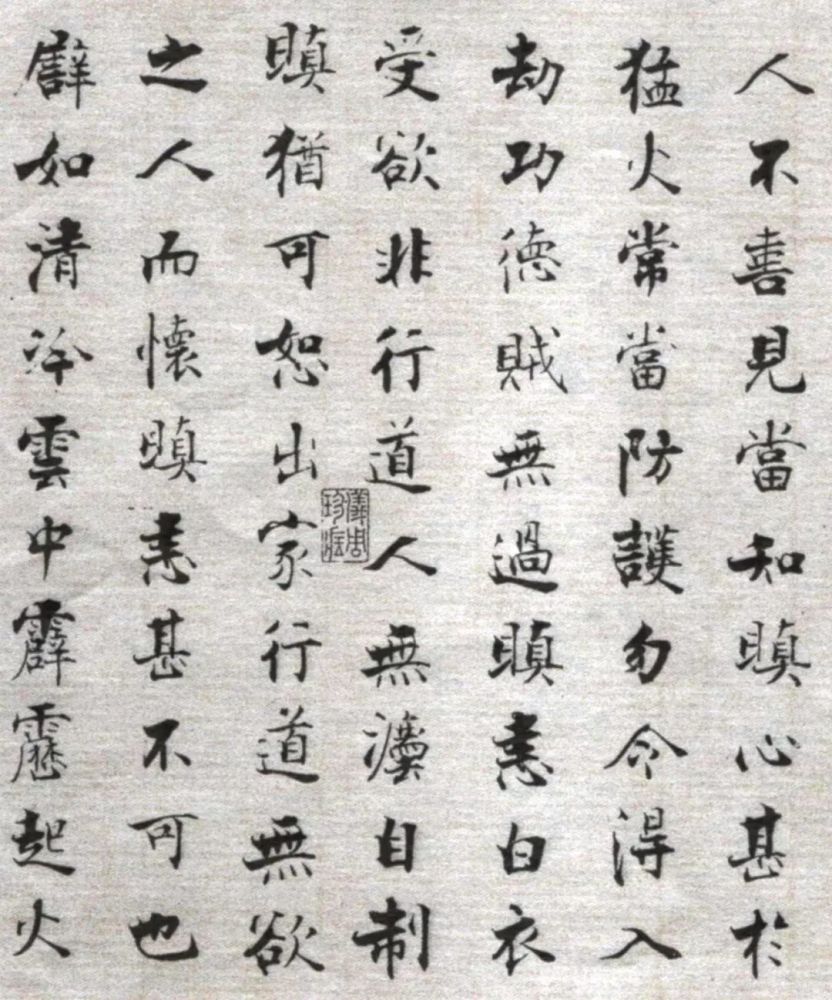 人不善見當知瞋心甚於
猛火常當防護勿令得入
劫功德賊無過瞋恚白衣
受欲非行道人無法自制
瞋猶可恕出家行道無欲
之人而懷瞋恚甚不可也
譬如清冷雲中霹靂起火